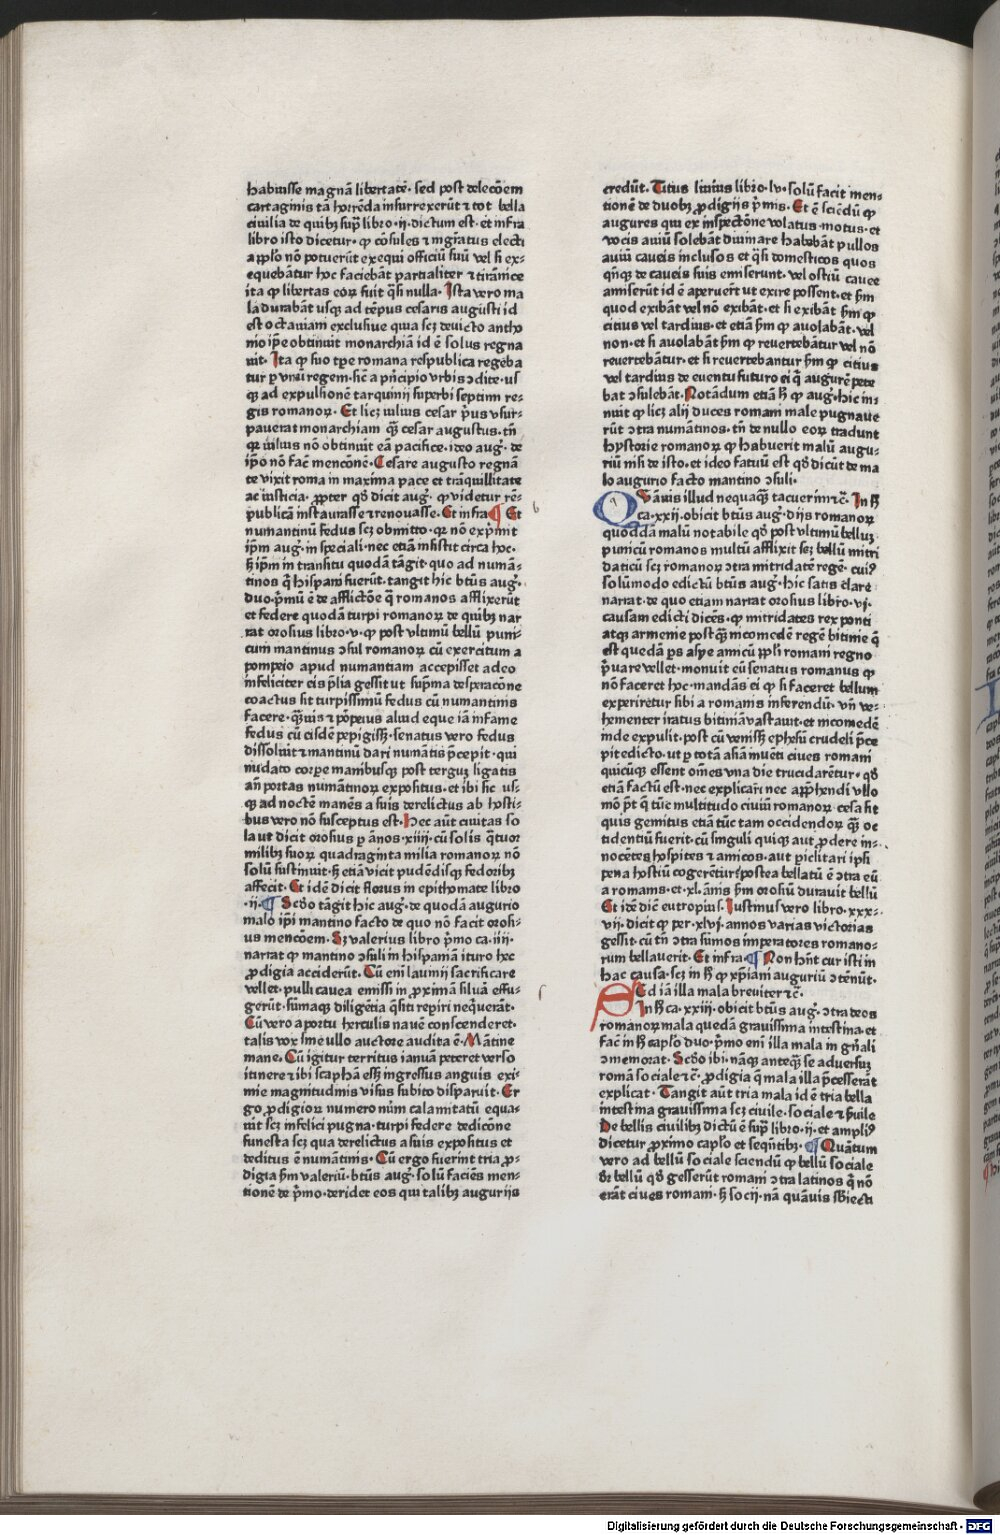 habuisse magnā libertatē· sed post delecōem
cartaginis tā horrēda insurrexerūt ⁊ tot bella
ciuilia de quibꝫ supͣ libro·ij·dictum est·et infra
libro isto dicetur·ꝙ cōsules ⁊ mgr̄atus electi
a ppl̄o nō potuerūt exequi officiū suū vel si ex⸗
equebātur hoc faciebāt partialiter ⁊ tirānice
ita ꝙ libertas eoꝝ fuit q̄si nulla· Ista vero ma
la durabāt usqꝫ ad tēpus cesaris augusti id
est octauiam exclusiue quia scꝫ deuicto antho
nio ip̄e obtinuit monarchiā id ē solus regna
uit· Ita ꝙ suo tp̄e romana respublica regeba
tur ꝑ vnū regem·sic̄ a pͥncipio vrbis ꝯdite·us
qꝫ ad expulsionē tarquinij superbi septimi re⸗
gis romanoꝝ· Et licꝫ iulius cesar pͥus vsur⸗
pauerat monarchiam qꝫ̄ cesar augustus·tn̄
qꝛ iulius nō obtinuit eā pacifice·ideo augꝰ·de
ip̄o nō fac̄ mencōnē· Cesare augusto regnā
te vixit roma in maxima pace et trāquillitate
ac iusticia· ꝓpter qđ dicit augꝰ· ꝙ videtur rē⸗
publicā instaurasse ⁊ renouasse· Et infra ¶ Et
numantinū fedus scꝫ obmitto·qꝛ nō expͥmit
ip̄m augꝰ·in speciali·nec etiā insistit circa hoc·
ſꝫ ip̄m in transitu quodā tāgit·quo ad numā⸗
tinos q̄ hispani fuerūt·tangit hic btūs augꝰ·
duo·pͥmū ē de afflictōe q̄ romanos afflixerūt
et federe quodā turpi romanoꝝ de quibꝫ nar
rat orosius libro·v·ꝙ post vltimū bellū puni⸗
cum mantinus ꝯsul romanoꝝ cū exercitum a
pompeio apud numantiam accepisset adeo
infeliciter eis pͥlia gessit ut supͥma desperacōne
coactus sit turpissimū fedus cū numantinis
facere·qꝫ̄uis ⁊ pōpeius aliud eque iā infame
fedus cū eisdē pepigissꝫ·senatus vero fedus
dissoluit ⁊ mantinū dari numātis pͥcepit·qui
nudato corpe manibusqꝫ post terguꝫ ligatis
an̄ portas numātinoꝝ expositus·et ibi sic us⸗
qꝫ ad noctē manēs a suis derelictus ab hosti⸗
bus vero nō susceptus est· Hec aūt ciuitas so
la ut dicit orosius ꝑ ānos·xiiij·cū solis q̄tuor
milibꝫ suoꝝ quadraginta milia romanoꝝ nō
solū sustinuit·ſꝫ etiā vicit pudēdisqꝫ fedoribꝫ
affecit· Et idē dicit florus in epithomate libro
·ij· ¶ Scđo tāgit hic augꝰ·de quodā augurio
malo ip̄i mantino facto de quo nō facit orosi⸗
us mencōem· Sꝫ valerius libro pͥmo ca·iiij·
narrat ꝙ mantino ꝯsuli in hispaniā ituro hec
ꝓdigia acciderūt· Cū eni lauinij sacrificare
vellet·pulli cauea emissi in ꝓximā siluā effu⸗
gerūt·sūmaqꝫ diligētia q̄siti repiri neqͥuerāt·
Cū vero a portu herculis nauē conscenderet·
talis vox sine ullo auctore audita ē· Mātine
mane· Cū igitur territus ianuā peteret verso
itinere ⁊ ibi scaphā essꝫ ingressus anguis exi⸗
mie magnitudinis visus subito disparuit· Er
go ꝓdigioꝝ numero nūm calamitatū equa⸗
uit scꝫ infelici pugna·turpi federe dedicōne
funesta scꝫ qua derelictus a suis expositus et
deditus ē numātinis· Cū ergo fuerint tria ꝓ⸗
digia sm̄ valeriū·btūs augꝰ·solū faciēs men⸗
tionē de pͥmo·deridet eos qui talibꝫ augurijs
credūt· Titus liuius libro·lv·solū facit men⸗
tionē de duobꝫ ꝓdigijs pͥmis· Et ē sciēdū ꝙ
augures qui ex inspectōne volatus·motus·et
vocis auiū solebāt diuinare habebāt pullos
auiū caueis inclusos et q̄si domesticos quos
qn̄qꝫ de caueis suis emiserunt· vel ostiū cauee
amiserūt id ē aperuerūt ut exire possent·et sm̄
quod exibāt vel nō exibāt·et si exibāt sm̄ ꝙ
citius vel tardius·et etiā sm̄ ꝙ auolabāt·vel
non·et si auolabāt sm̄ ꝙ reuertebātur vel nō
reuertebātur·et si reuertebantur sm̄ ꝙ citius
vel tardius de euentu futuro ei q̄ augurē pete
bat ꝯsulebāt· Notādum etiā ſꝫ ꝙ augꝰ·hic in⸗
nuit ꝙ licꝫ alij duces romani male pugnaue
rūt ꝯtra numātinos·tn̄ de nullo eoꝝ tradunt
hystorie romanoꝝ ꝙ habuerit malū augu⸗
riū nisi de isto·et ideo fatuū est qđ dicūt de ma
lo augurio facto mantino ꝯsuli·
Quāuis illud nequaqꝫ̄ tacuerim ⁊c̄· In ſꝫ
ca·xxij·obicit btūs augꝰ·dijs romanoꝝ
quoddā malū notabile qđ post vltimū belluꝫ
punicū romanos multū afflixit scꝫ bellū mitri
daticū scꝫ romanoꝝ ꝯtra mitridatē regē· cuiꝰ
solūmodo edictū btūs augꝰ·hic satis clare
narrat·de quo etiam narrat orosius libro·vj·
causam edicti dicēs·ꝙ mitridates rex ponti
atqꝫ armenie postqꝫ̄ nicomedē regē bitinie q̄
est quedā ꝑs asye amicū ppl̄i romani regno
pͥuare vellet·monuit cū senatus romanus ꝙ
nō faceret hoc·mandās ei ꝙ si faceret bellum
experiretur sibi a romanis inferendū· vn̄ ve⸗
hementer iratus bitiniā vastauit·et nicomedē
inde expulit·post cū venissꝫ ephesū crudeli pͥce
pit edicto·ut ꝑ totā asiā inuēti ciues romani
quicūqꝫ essent oēs vna die trucidarētur· qđ
etiā factū est·nec explicari nec app̄hendi ullo
mō pt̄ q̄ tūc multitudo ciuiū romanoꝝ cesa sit
quis gemitus etiā tūc tam occidendoꝝ qꝫ̄ oc
cidentiū fuerit·cū singuli quiqꝫ aut ꝓdere in⸗
nocētes hospites ⁊ amicos·aut ꝑiclitari ipsi
pena hostiū cogerētur postea bellatū ē ꝯtra eū
a romanis·et·xl·ānis sm̄ orosiū durauit bellū
Et idē dic̄ eutropius· Iustinus vero libro·xxx⸗
vij·dicit ꝙ per·xlvj·annos varias victorias
gessit·cū tn̄ ꝯtra sūmos imperatores romano⸗
rum bellauerit· Et infra ¶ Non hn̄t cur isti in
hac causa·scꝫ in ſꝫ ꝙ xp̄iani auguriū ꝯtēnūt·
Sed iā illa mala breuiter ⁊c̄·
In ſꝫ ca·xxiij·obicit btūs augꝰ·ꝯtra deos
romanoꝝ mala quedā grauissima intestina·et
fac̄ in ſꝫ capl̄o duo·pͥmo eni illa mala in gn̄ali
ꝯmemorat· Scđo ibi·nāqꝫ anteqꝫ̄ se aduersuꝫ
romā sociale ⁊c̄· ꝓdigia q̄ mala illa pͥcesserāt
explicat· Tangit aūt tria mala id ē tria bella
intestina grauissima scꝫ ciuile·sociale ⁊ ẜuile
De bellis ciuilibꝫ dictū ē supͣ libro·ij·et ampliꝰ
dicetur ꝓximo capl̄o et seqn̄tibꝫ· ¶ Quātum
vero ad bellū sociale sciendū ꝙ bellū sociale
dr̄ bellū qđ gesserūt romani ꝯtra latinos q̄ nō
erāt ciues romani·ſꝫ socij·nā quāuis sb̄iecti
Digitalisierung gefördert durch die Deutsche Forschungsgemeinschaft - DFG